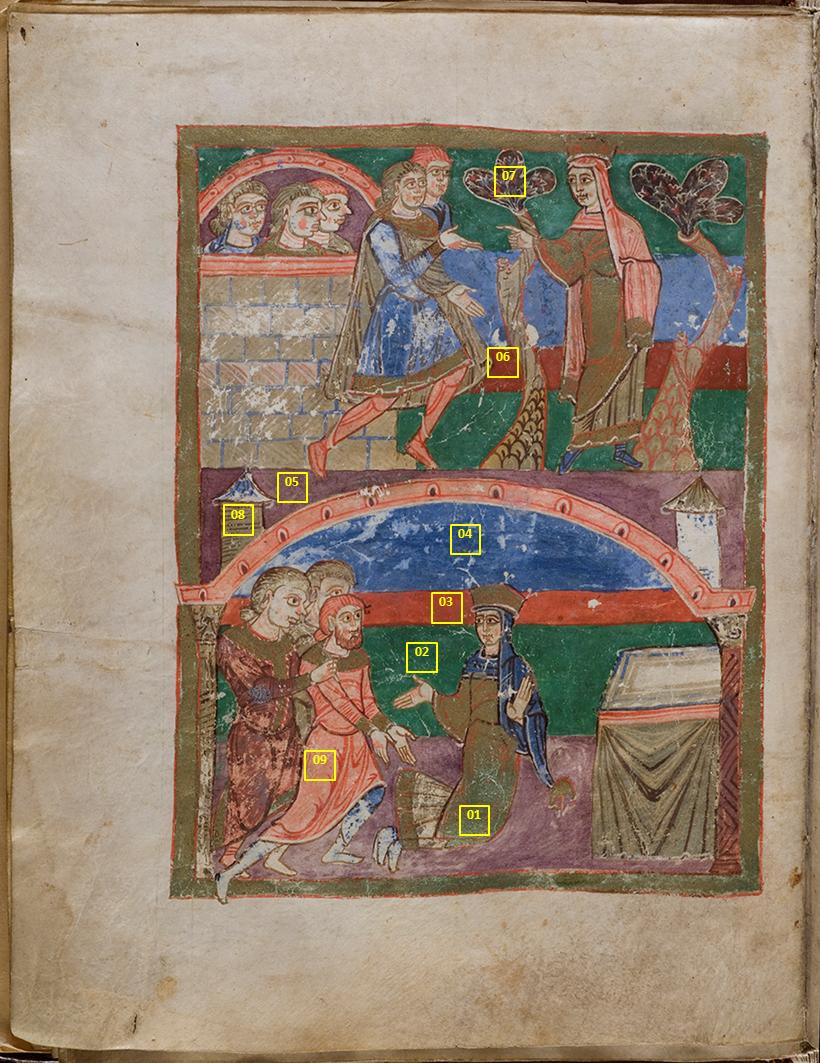 07
06
05
08
04
03
02
09
01